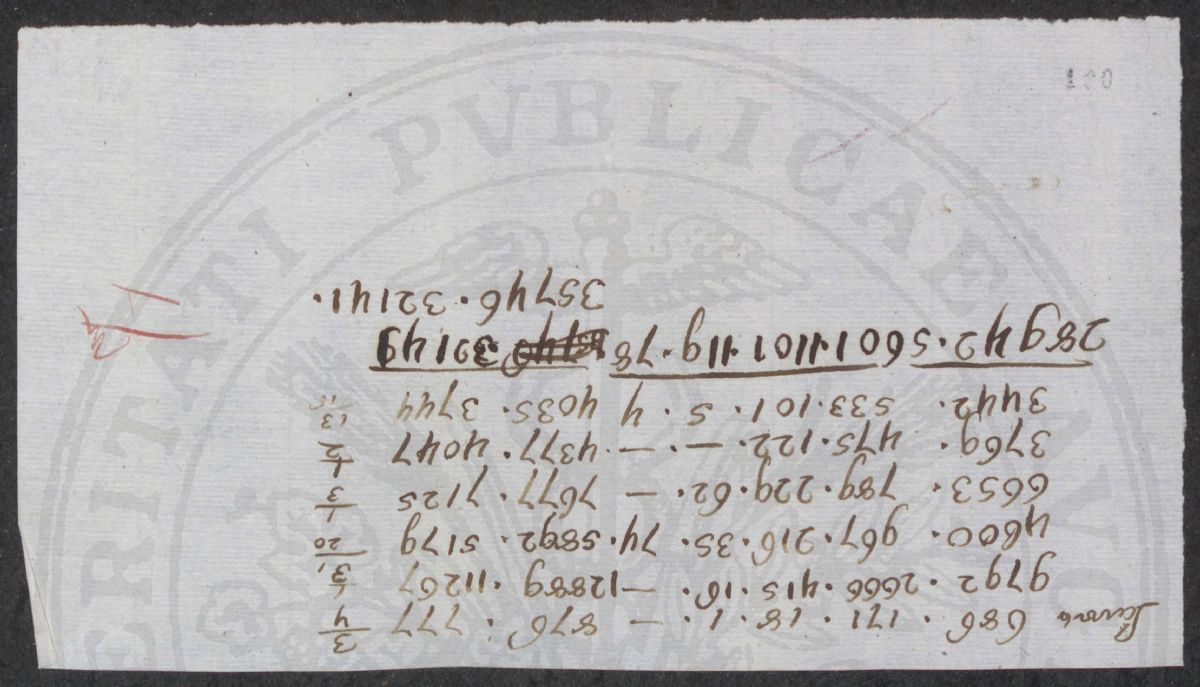 100
686 · 171 · 18 · 1 · — 876 · 777 3/4
9792 · 2666 · 415 · 16 · — 12889 11267 1/3
4600 · 967 · 216 · 35 · 74 · 5892 · 5179 1/20
6653 · 789 · 229 · 62 · — 7677 · 7125 1/3
3769 · 475 · 122 · — · — · 4377 · 4047 1/2
3442 · 533 · 101 · 5 · 4 4035 · 3744 13/15
28942 · 5601 · 1101 · 119 · 78 32149
35746 · 32141 ·
ERITATI PVBLICAE